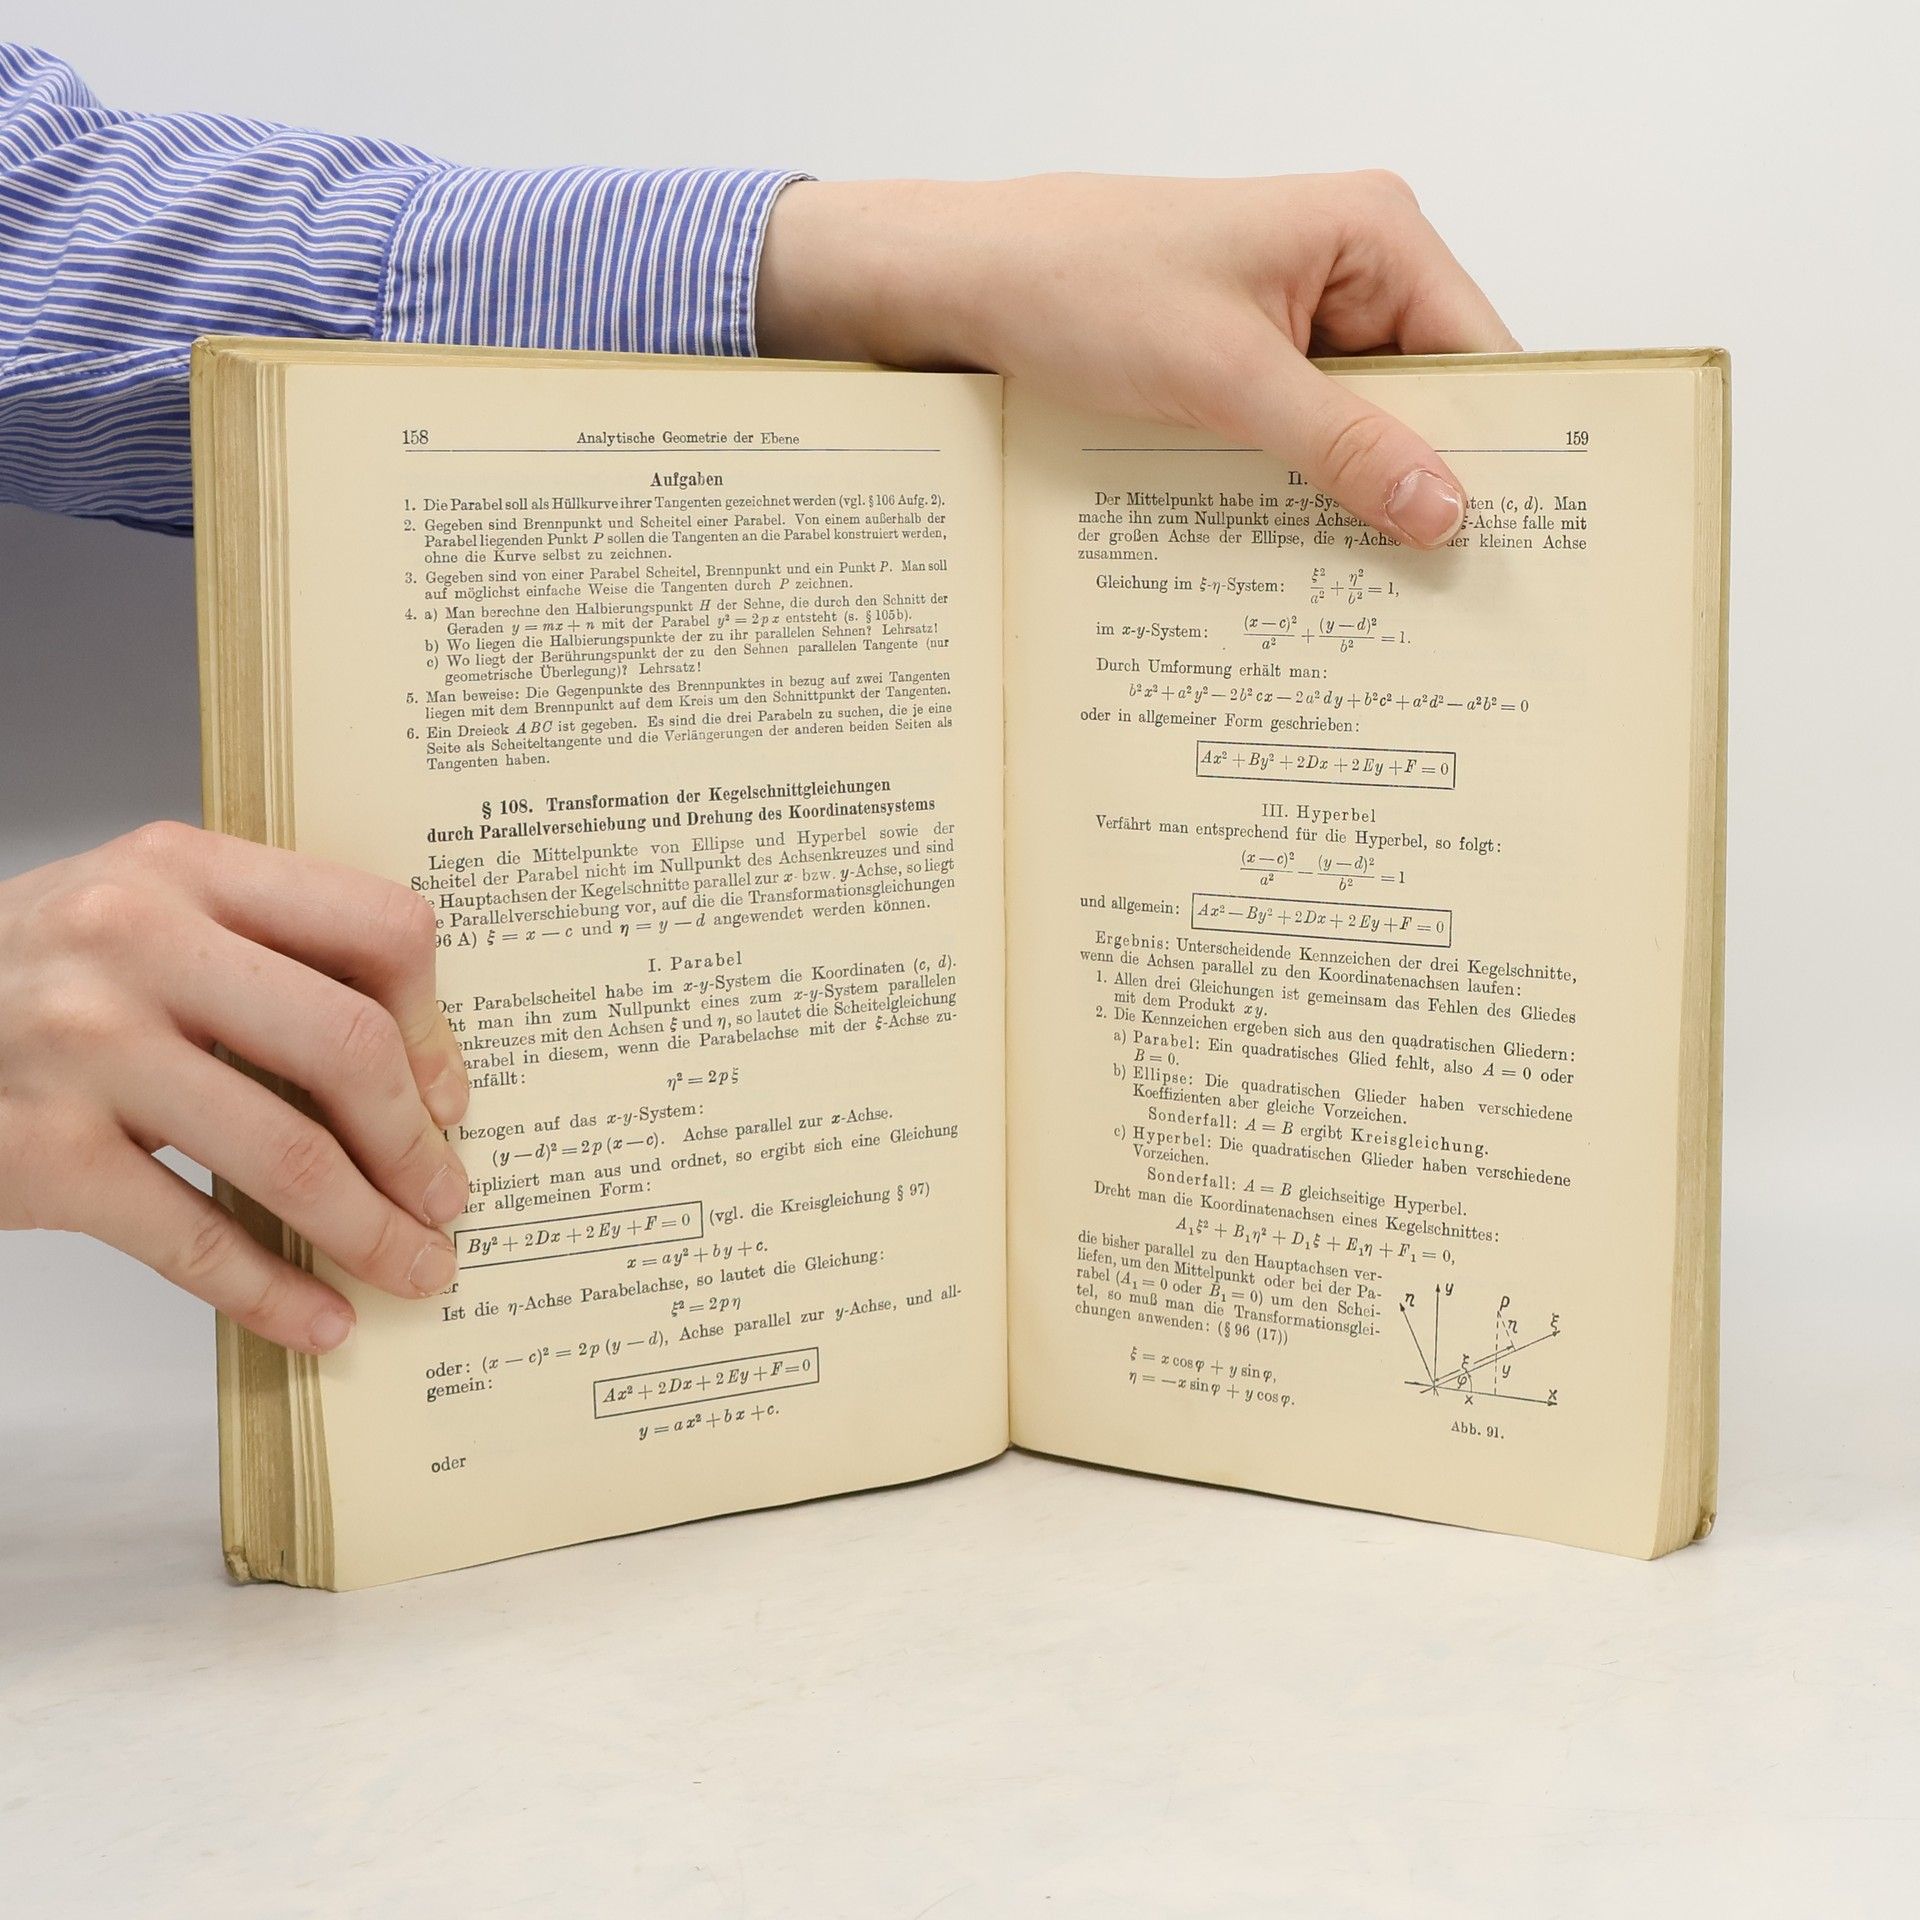 158 Analytische Geometrie der Ebene
Aufgaben
1. Die Parabel soll als Hüllkurve ihrer Tangenten gezeichnet werden (vgl. § 106 Aufg. 2).
2. Gegeben sind Brennpunkt und Scheitel einer Parabel. Von einem außerhalb der
Parabel liegenden Punkt P sollen die Tangenten an die Parabel konstruiert werden,
ohne die Kurve selbst zu zeichnen.
3. Gegeben sind von einer Parabel Scheitel, Brennpunkt und ein Punkt P. Man soll
auf möglichst einfache Weise die Tangenten durch P zeichnen.
4. a) Man berechne den Halbierungspunkt H der Sehne, die durch den Schnitt der
Geraden y = mx + n mit der Parabel y² = 2px entsteht (s. § 105b).
b) Wo liegen die Halbierungspunkte der zu ihr parallelen Sehnen? Lehrsatz!
c) Wo liegt der Berührungspunkt der zu den Sehnen parallelen Tangente (nur
geometrische Überlegung)? Lehrsatz!
5. Man beweise: Die Gegenpunkte des Brennpunktes in bezug auf zwei Tangenten
liegen mit dem Brennpunkt auf dem Kreis um den Schnittpunkt der Tangenten.
6. Ein Dreieck ABC ist gegeben. Es sind die drei Parabeln zu suchen, die je eine
Seite als Scheiteltangente und die Verlängerungen der anderen beiden Seiten als
Tangenten haben.
§ 108. Transformation der Kegelschnittgleichungen
durch Parallelverschiebung und Drehung des Koordinatensystems
Liegen die Mittelpunkte von Ellipse und Hyperbel sowie der
Scheitel der Parabel nicht im Nullpunkt des Achsenkreuzes und sind
Hauptachsen der Kegelschnitte parallel zur x- bzw. y-Achse, so liegt
e Parallelverschiebung vor, auf die die Transformationsgleichungen
96 A) ξ = x — c und η = y — d angewendet werden können.
I. Parabel
Der Parabelscheitel habe im x-y-System die Koordinaten (c, d).
ht man ihn zum Nullpunkt eines zum x-y-System parallelen
enkreuzes mit den Achsen ξ und η, so lautet die Scheitelgleichung
arabel in diesem, wenn die Parabelachse mit der ξ-Achse zu-
enfällt:
η² = 2pξ
bezogen auf das x-y-System:
(y — d)² = 2p (x — c). Achse parallel zur x-Achse.
tipliziert man aus und ordnet, so ergibt sich eine Gleichung
er allgemeinen Form:
By² + 2Dx + 2Ey + F = 0 (vgl. die Kreisgleichung § 97)
x = ay² + by + c.
er
Ist die η-Achse Parabelachse, so lautet die Gleichung:
ξ² = 2pη
oder: (x — c)² = 2p (y — d), Achse parallel zur y-Achse, und all-
gemein:
Ax² + 2Dx + 2Ey + F = 0
y = ax² + bx + c.
oder
159
II.
Der Mittelpunkt habe im x-y-Sys ten (c, d). Man
mache ihn zum Nullpunkt eines Achsen ξ-Achse falle mit
der großen Achse der Ellipse, die η-Achse der kleinen Achse
zusammen.
Gleichung im ξ-η-System: ξ²/a² + η²/b² = 1,
im x-y-System: (x — c)²/a² + (y — d)²/b² = 1.
Durch Umformung erhält man:
b²x² + a²y² — 2b²cx — 2a²dy + b²c² + a²d² — a²b² = 0
oder in allgemeiner Form geschrieben:
Ax² + By² + 2Dx + 2Ey + F = 0
III. Hyperbel
Verfährt man entsprechend für die Hyperbel, so folgt:
(x — c)²/a² — (y — d)²/b² = 1
und allgemein: Ax² — By² + 2Dx + 2Ey + F = 0
Ergebnis: Unterscheidende Kennzeichen der drei Kegelschnitte,
wenn die Achsen parallel zu den Koordinatenachsen laufen:
1. Allen drei Gleichungen ist gemeinsam das Fehlen des Gliedes
mit dem Produkt xy.
2. Die Kennzeichen ergeben sich aus den quadratischen Gliedern:
a) Parabel: Ein quadratisches Glied fehlt, also A = 0 oder
B = 0.
b) Ellipse: Die quadratischen Glieder haben verschiedene
Koeffizienten aber gleiche Vorzeichen.
Sonderfall: A = B ergibt Kreisgleichung.
c) Hyperbel: Die quadratischen Glieder haben verschiedene
Vorzeichen.
Sonderfall: A = B gleichseitige Hyperbel.
Dreht man die Koordinatenachsen eines Kegelschnittes:
A₁ξ² + B₁η² + D₁ξ + E₁η + F₁ = 0,
die bisher parallel zu den Hauptachsen ver-
liefen, um den Mittelpunkt oder bei der Pa-
rabel (A₁ = 0 oder B₁ = 0) um den Schei-
tel, so muß man die Transformationsglei-
chungen anwenden: (§ 96 (17))
ξ = x cos φ + y sin φ,
η = —x sin φ + y cos φ.
η y P ξ
η
ξ y
φ
x x
Abb. 91.